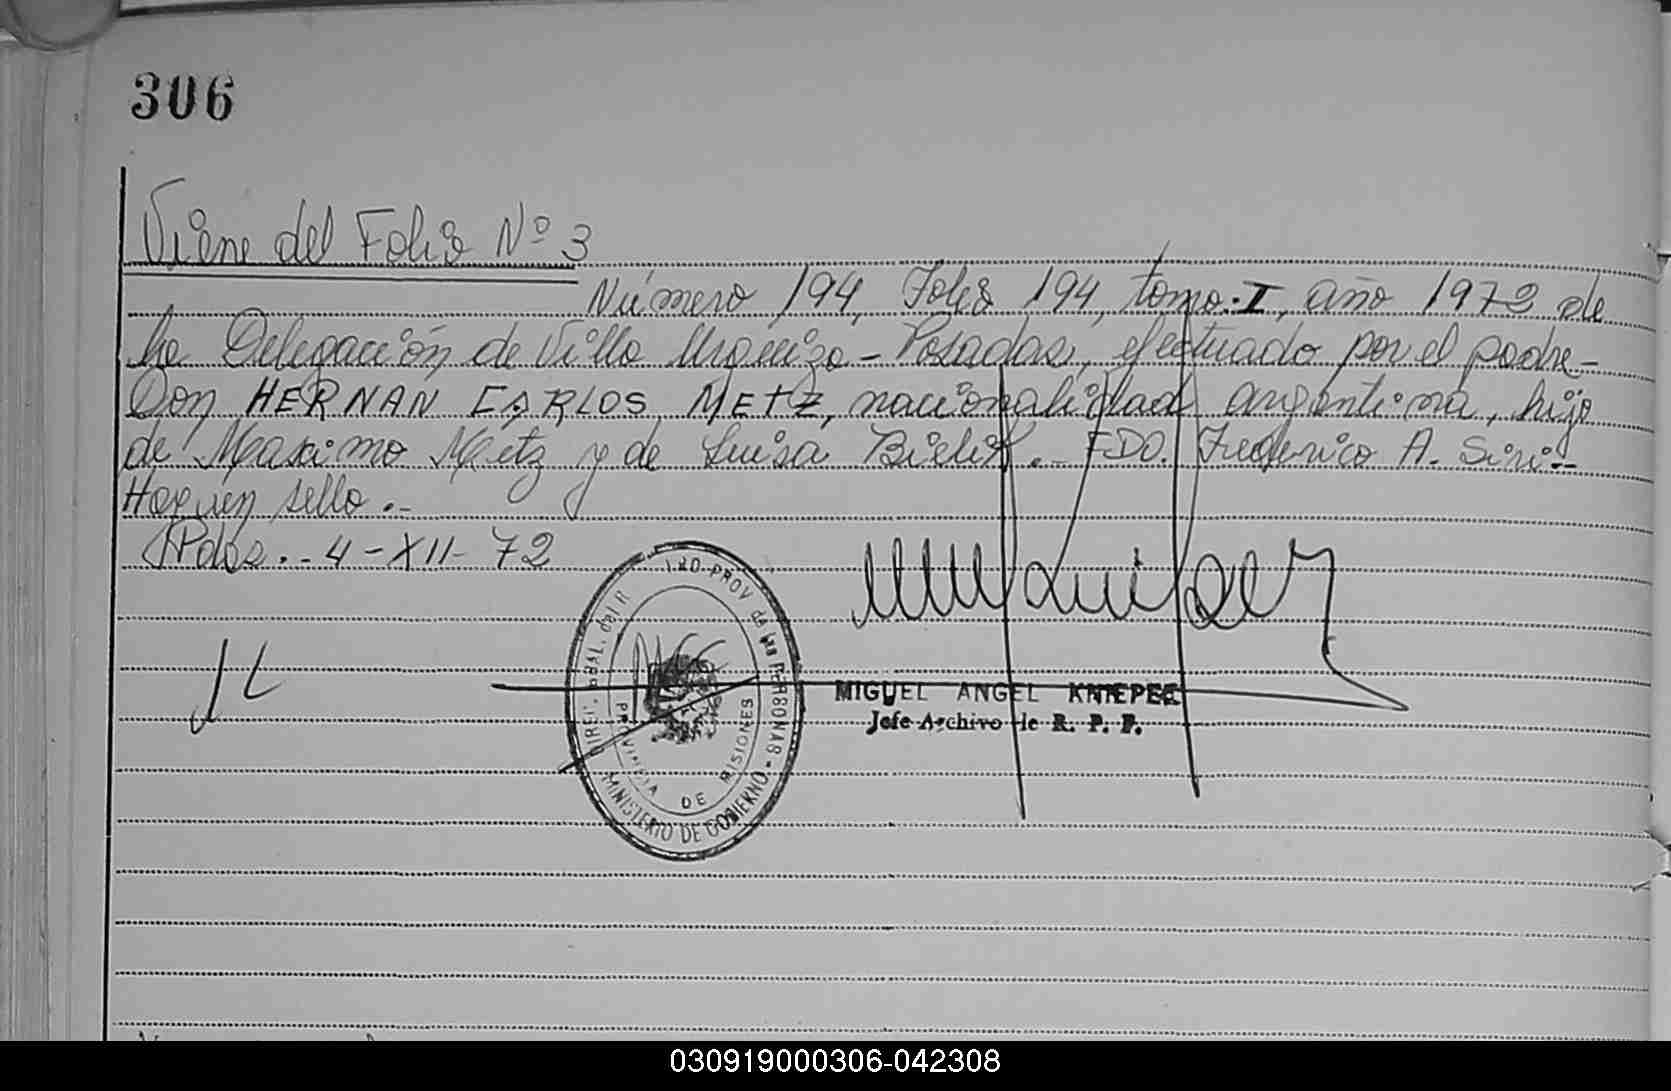 306
Viene del Folio Nº 3
Número 194, Folio 194, tomo: I, año 1972 de
la Delegación de Villa Urquiza - Posadas, efectuado por el padre -
Don HERNAN CARLOS METZ, nacionalidad argentina, hijo
de Maximo Metz y de Luisa Bielik.- FDO. Federico A. Sini.-
Hay un sello.-
Pdas.- 4-XII-72
DIREC. GRAL. del R PROV de las PERSONAS - MINISTERIO DE GOBIERNO
PROVINCIA DE MISIONES
MIGUEL ANGEL KNIEPER
Jefe Archivo de R. P. P.
030919000306-042308